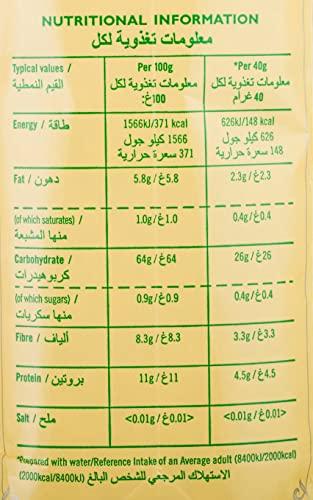 NUTRITIONAL INFORMATION
معلومات تغذوية لكل
Typical values /
القيم النمطية
Per 100g
معلومات تغذوية لكل
100غ:
*Per 40g
معلومات تغذوية لكل
40 غرام
Energy / طاقة
1566kJ/371 kcal
1566 كيلو جول
371 سعرة حرارية
626kJ/148 kcal
626 كيلو جول
148 سعرة حرارية
Fat / دهون
5.8g/غ5.8
2.3g/غ2.3
(of which saturates) /
منها المشبعة
1.0g/غ1.0
0.4g/غ0.4
Carbohydrate /
كربوهيدرات
64g/غ64
26g/غ26
(of which sugars) /
منها سكريات
0.9g/غ0.9
0.4g/غ0.4
Fibre / ألياف
8.3g/غ8.3
3.3g/غ3.3
Protein / بروتين
11g/غ11
4.5g/غ4.5
Salt / ملح
<0.01g/غ0.01>
<0.01g/غ0.01>
*Prepared with water/Reference Intake of an Average adult (8400kJ/2000kcal)
الاستهلاك المرجعي للشخص البالغ (2000kcal/8400kJ)